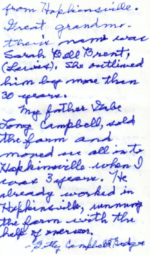 from Hopkinsville.
Great grandmo-
ther's name was
Sarah Bell Brent,
(Lewis). She outlived
him by more than
30 years.
My father
Long Campbell, sold
the farm and
moved us all into
Hopkinsville when I
was 3 years. He
already worked in
Hopkinsville, running
the farm with the
help of
Campbell